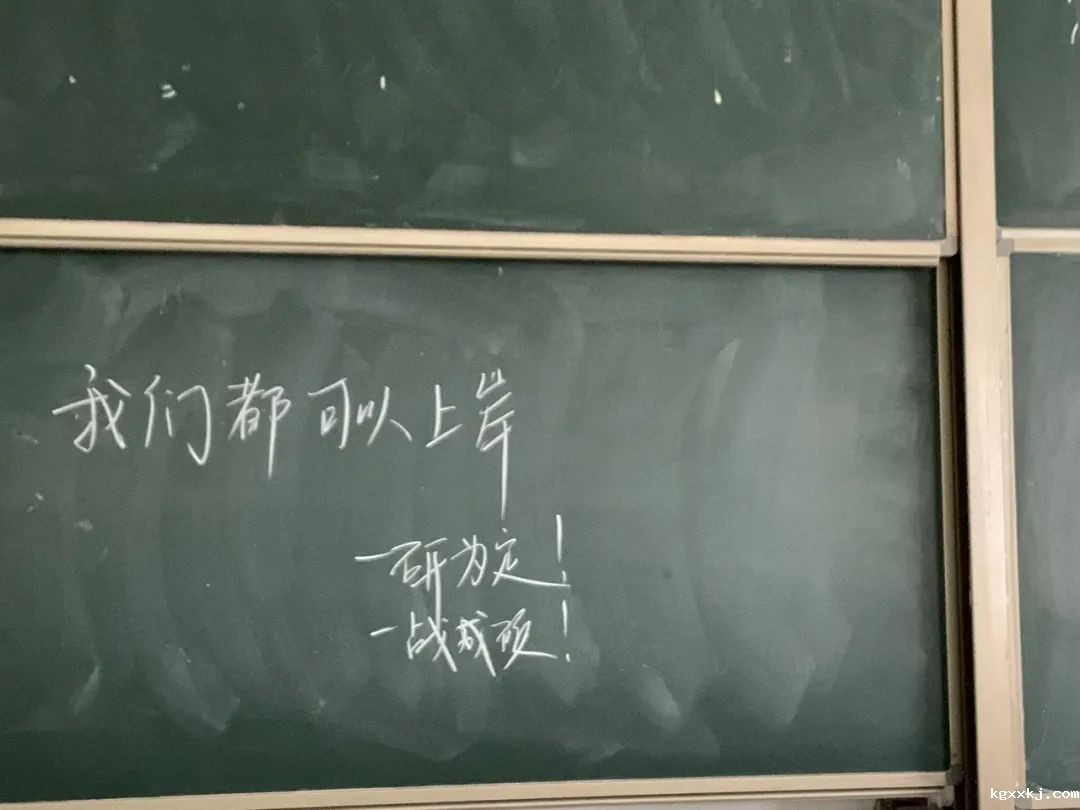 我们都可以上岸
一研为定！
一战成硕！
kgxxkj.com